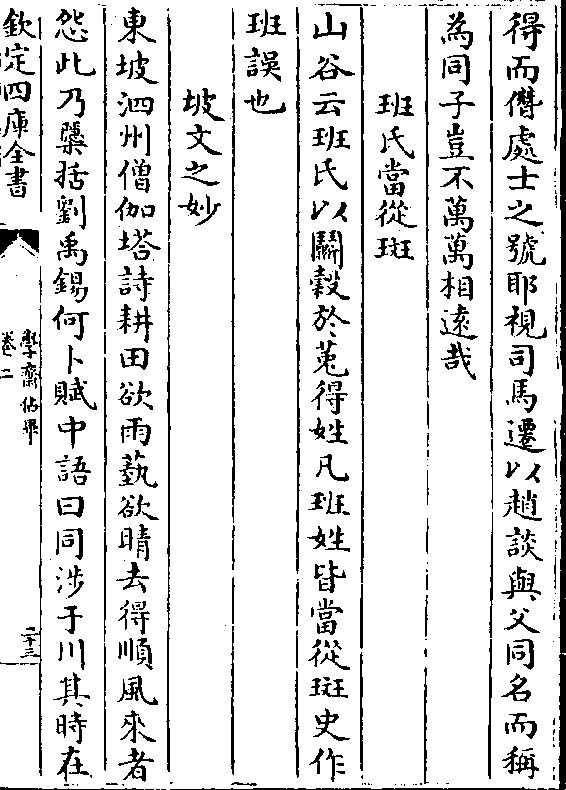 得而僭處士之號耶視司馬遷以趙談與父同名而稱
為同子豈不萬萬相遠哉
班氏當從斑
山谷云班氏以鬬穀於菟得姓凡班姓皆當從斑史作
班誤也
坡文之妙
東坡泗州僧伽塔詩耕田欲雨蓺欲晴去得順風來者
怨此乃櫽括劉禹錫何卜賦中語曰同涉于川其時在
欽定四庫全書
學齋佔畢
卷二
二十三